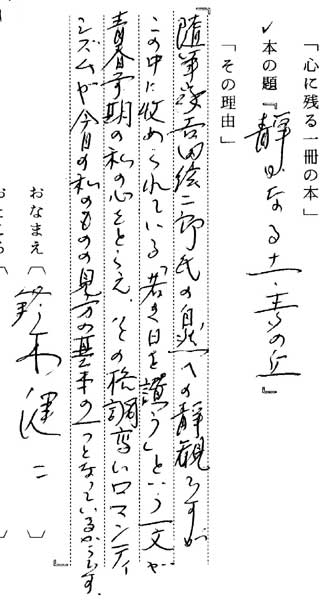 「心に残る一冊の本」
✓本の題『静かなる土・青の丘』
「その理由」
『随筆家吉田絃二郎氏の自然への静観ですが
この中に收められている「若き日を讃う」という一文が
青春前期の私の心をとらえ、その格調高いロマンティ
シズムが今日の私のものの見方の基本の一つとなっているからです。』
おなまえ〔鈴木健二〕
おところ〔